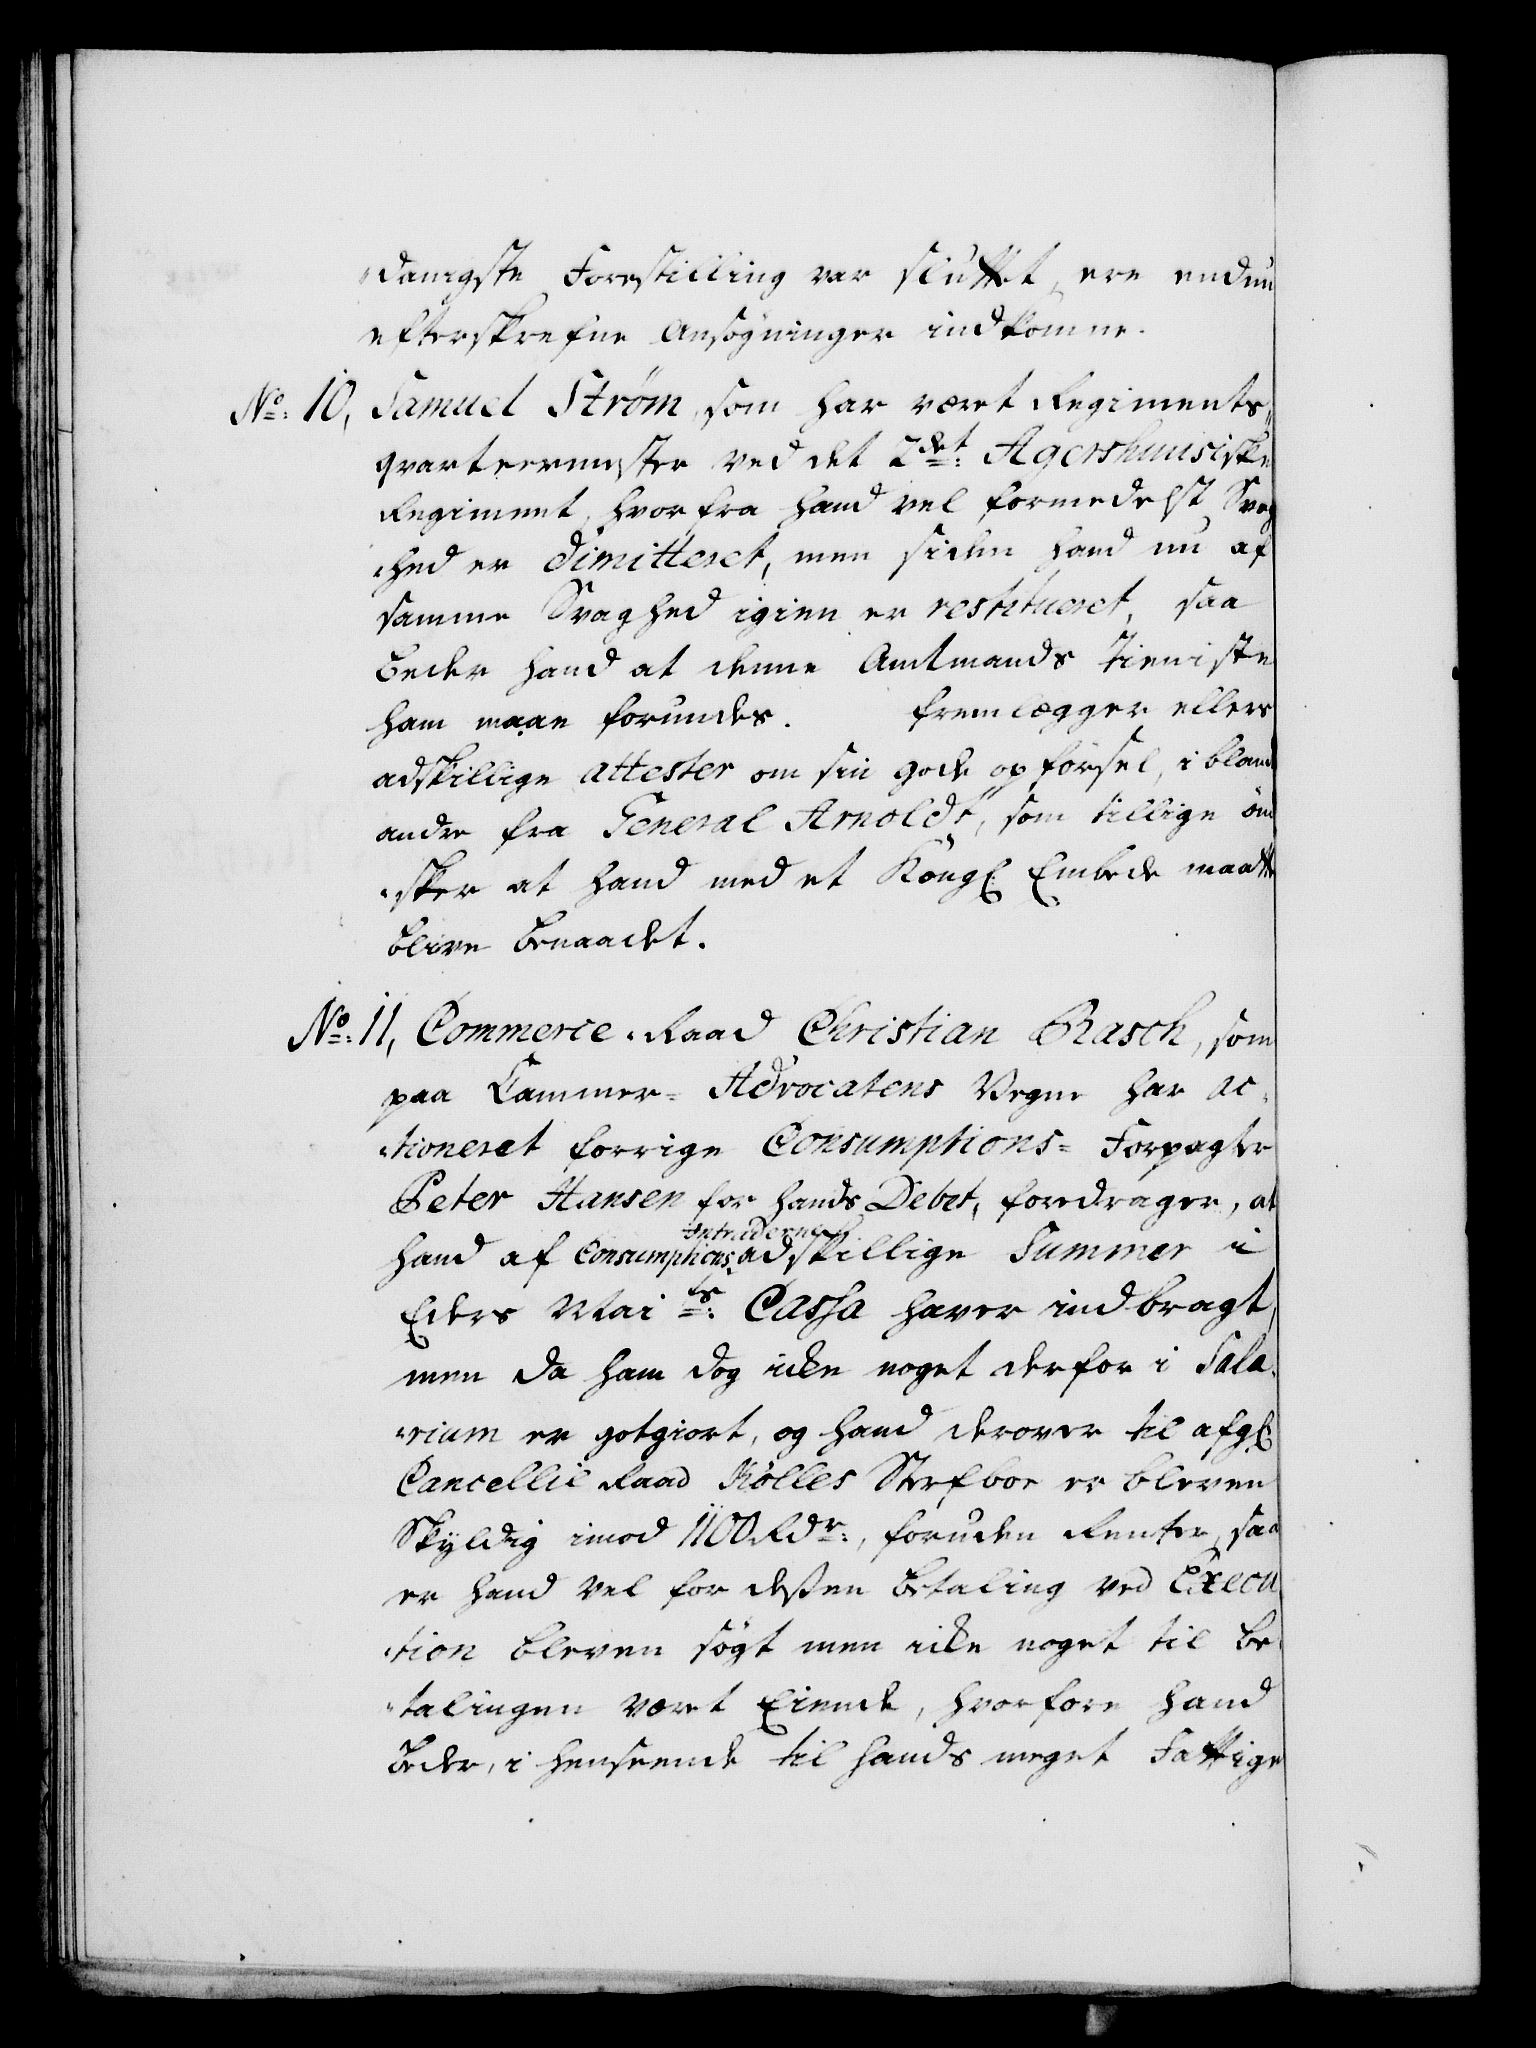 „danigste Forestilling var sluttet, ere endnu
efterskrefne Ansøgninger indkomne.
No: 10, Samuel Strøm, som har været Regiments„
qvarteermester ved det 2det: Agershuusiske
Regiment, hvorfra hand vel formedelst Svag
„hed er dimitteret, men siden hand nu af
samme Svaghed igien er restitueret, saa
beder hand at denne Amtmands Tieniste
ham maae forundes. fremlægger ellers
adskillige attester om sin gode opførsel, i bland
andre fra General Arnoldt, som tillige øn
„sker at hand med et Kongl: Embede maatte
blive benaadet.
No: 11, Commerce-Raad Christian Rasch, som
paa Cammer- Advocatens Vegne har ac„
„tioneret forrige Consumptions- Forpagter
Peter Hansen for hands Debet, foredrager, at
Intraderne
hand af Consumptions adskillige Summer i
Eders Maits: Cassa haver indbragt,
men da ham dog icke noget derfor i Sala„
„rium er gotgiort, og hand derover til afgl:
Cancellie Raad Kølles Sterfboe er bleven
skyldig imod 1100 Rdr:, foruden Renter, saa
er hand vel for dessen betaling ved Execu
„tion bleven søgt men icke noget til be„
„talingen været Eiende, hvorfore hand
beder, i henseende til hands meget Fattige